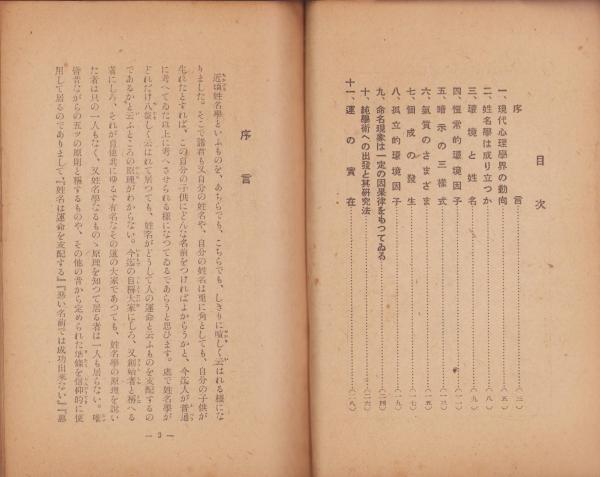 目次
序言……(三)
一、現代心理學界の動向……(五)
二、姓名學は成り立つか……(八)
三、環境と姓名……(九)
四、恆常的環境因子……(一一)
五、暗示の三樣式……(一三)
六、氣質のさまざま……(一五)
七、個成の發生……(一七)
八、孤立的環境因子……(一九)
九、命名現象は一定の因果律をもつてゐる……(二四)
十、純學術への出發と其研究法……(二六)
十一、運の實在……(二八)
序言
近頃姓名學といふものを、あちらでも、こちらでも、しきりに喧しく云はれる樣にな
りました。そこで諸君も又自分の姓名や、自分の姓名は兎に角としても、自分の子供が
生れたとすれば、この自分の子供にどんな名前をつければよからうかと、今迄人が普通
に考へてゐた以上に考へさせられる樣になつてゐるであらうと思ひます。處で姓名學が
どれだけ八釜しく云はれて居つても、姓名がどうして人の運命と云ふものを支配するの
であるかと云ふところの原理がわからない。今迄の自稱大家にしろ、又創始者と稱へる
者にしろ、それが自他共にゆるす有名なその道の大家であつても、姓名學の原理を說い
た者は只の一人もなく、又姓名學なるものゝ原理を知つて居る者は一人も居らない。唯
皆昔ながらの五ツの原則と稱するものや、その他の昔から定められた條を信仰的に使
用して居るのでありまして『姓名は運命を支配する』『惡い名前では成功出來ない』『惡
— 3 —